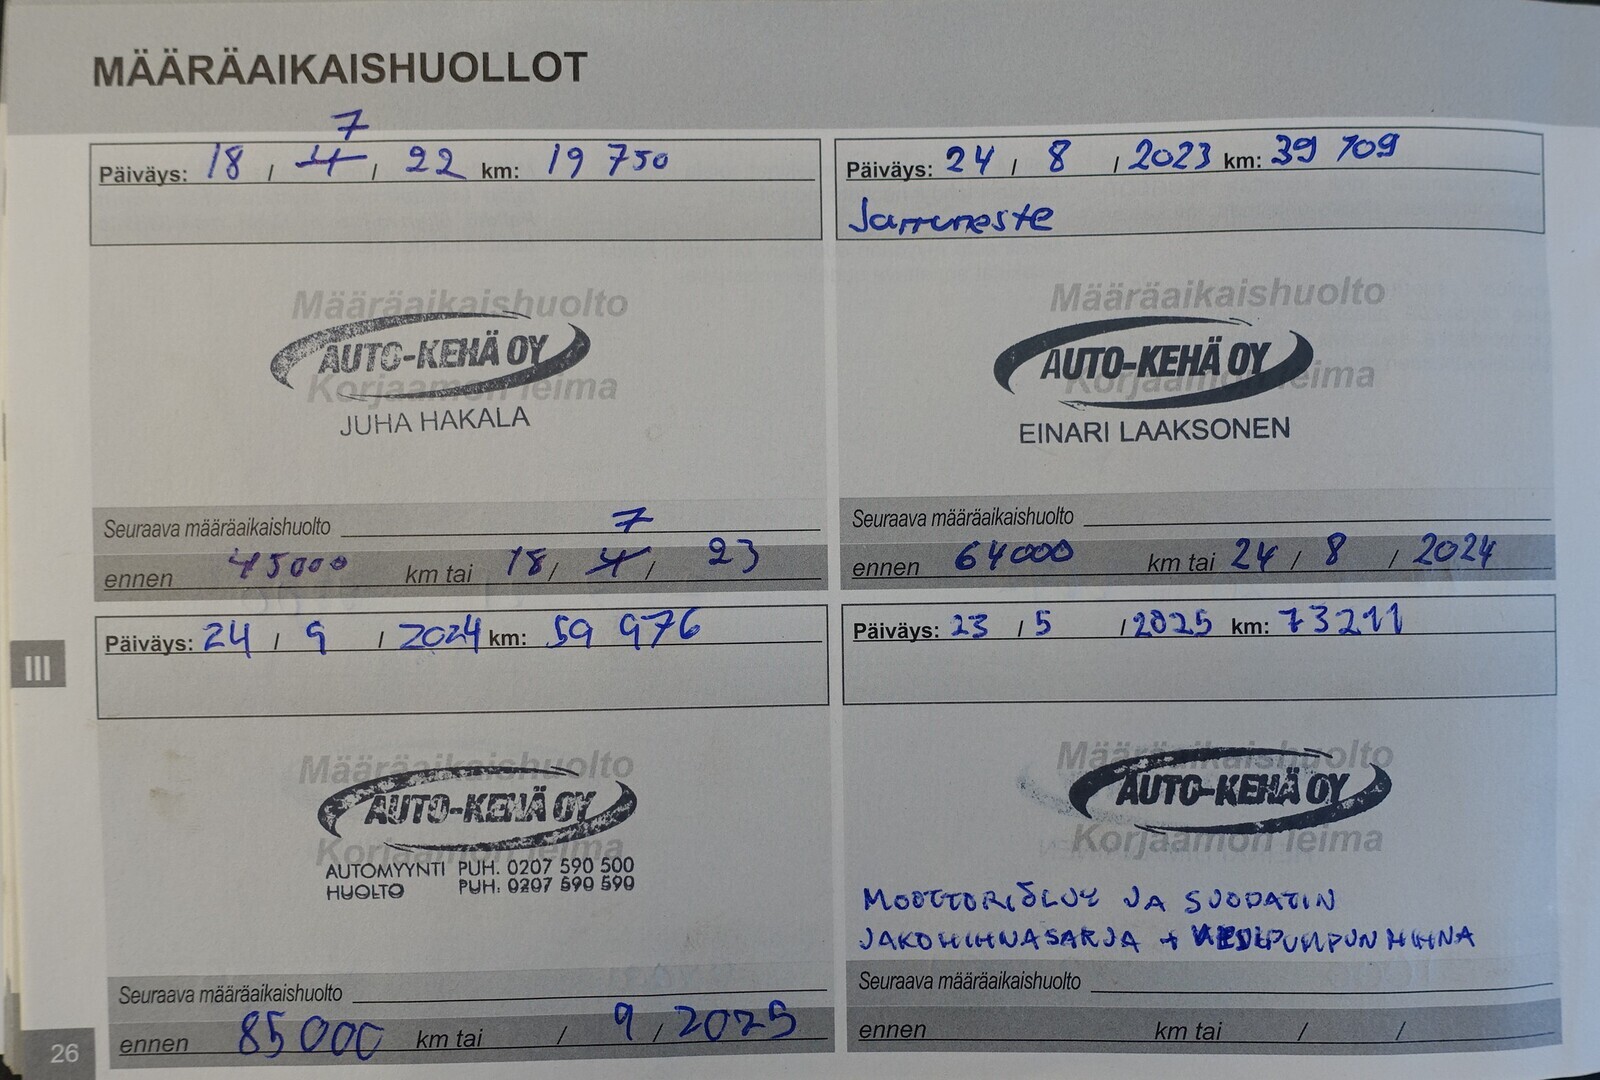 MÄÄRÄAIKAISHUOLLOT
7
Päiväys: 18 / 4 / 22 km: 19 750
Määräaikaishuolto
AUTO-KEHÄ OY
Korjaamon leima
JUHA HAKALA
Seuraava määräaikaishuolto
7
ennen 45000 km tai 18 / 4 / 23
Päiväys: 24 / 8 / 2023 km: 39 709
Jarruneste
Määräaikaishuolto
AUTO-KEHÄ OY
Korjaamon leima
EINARI LAAKSONEN
Seuraava määräaikaishuolto
ennen 64000 km tai 24 / 8 / 2024
Päiväys: 24 / 9 / 2024 km: 59 976
Määräaikaishuolto
AUTO-KEHÄ OY
Korjaamon leima
AUTOMYYNTI PUH. 0207 590 500
HUOLTO PUH: 0207 590 590
Seuraava määräaikaishuolto
ennen 85 000 km tai / 9 / 2025
Päiväys: 23 / 5 / 2025 km: 73211
Määräaikaishuolto
AUTO-KEHÄ OY
Korjaamon leima
MOOTTORIÖLJY JA SUODATIN
JAKOHIHNASARJA + VESIPUMPUN HIHNA
Seuraava määräaikaishuolto
ennen km tai / /
III
26